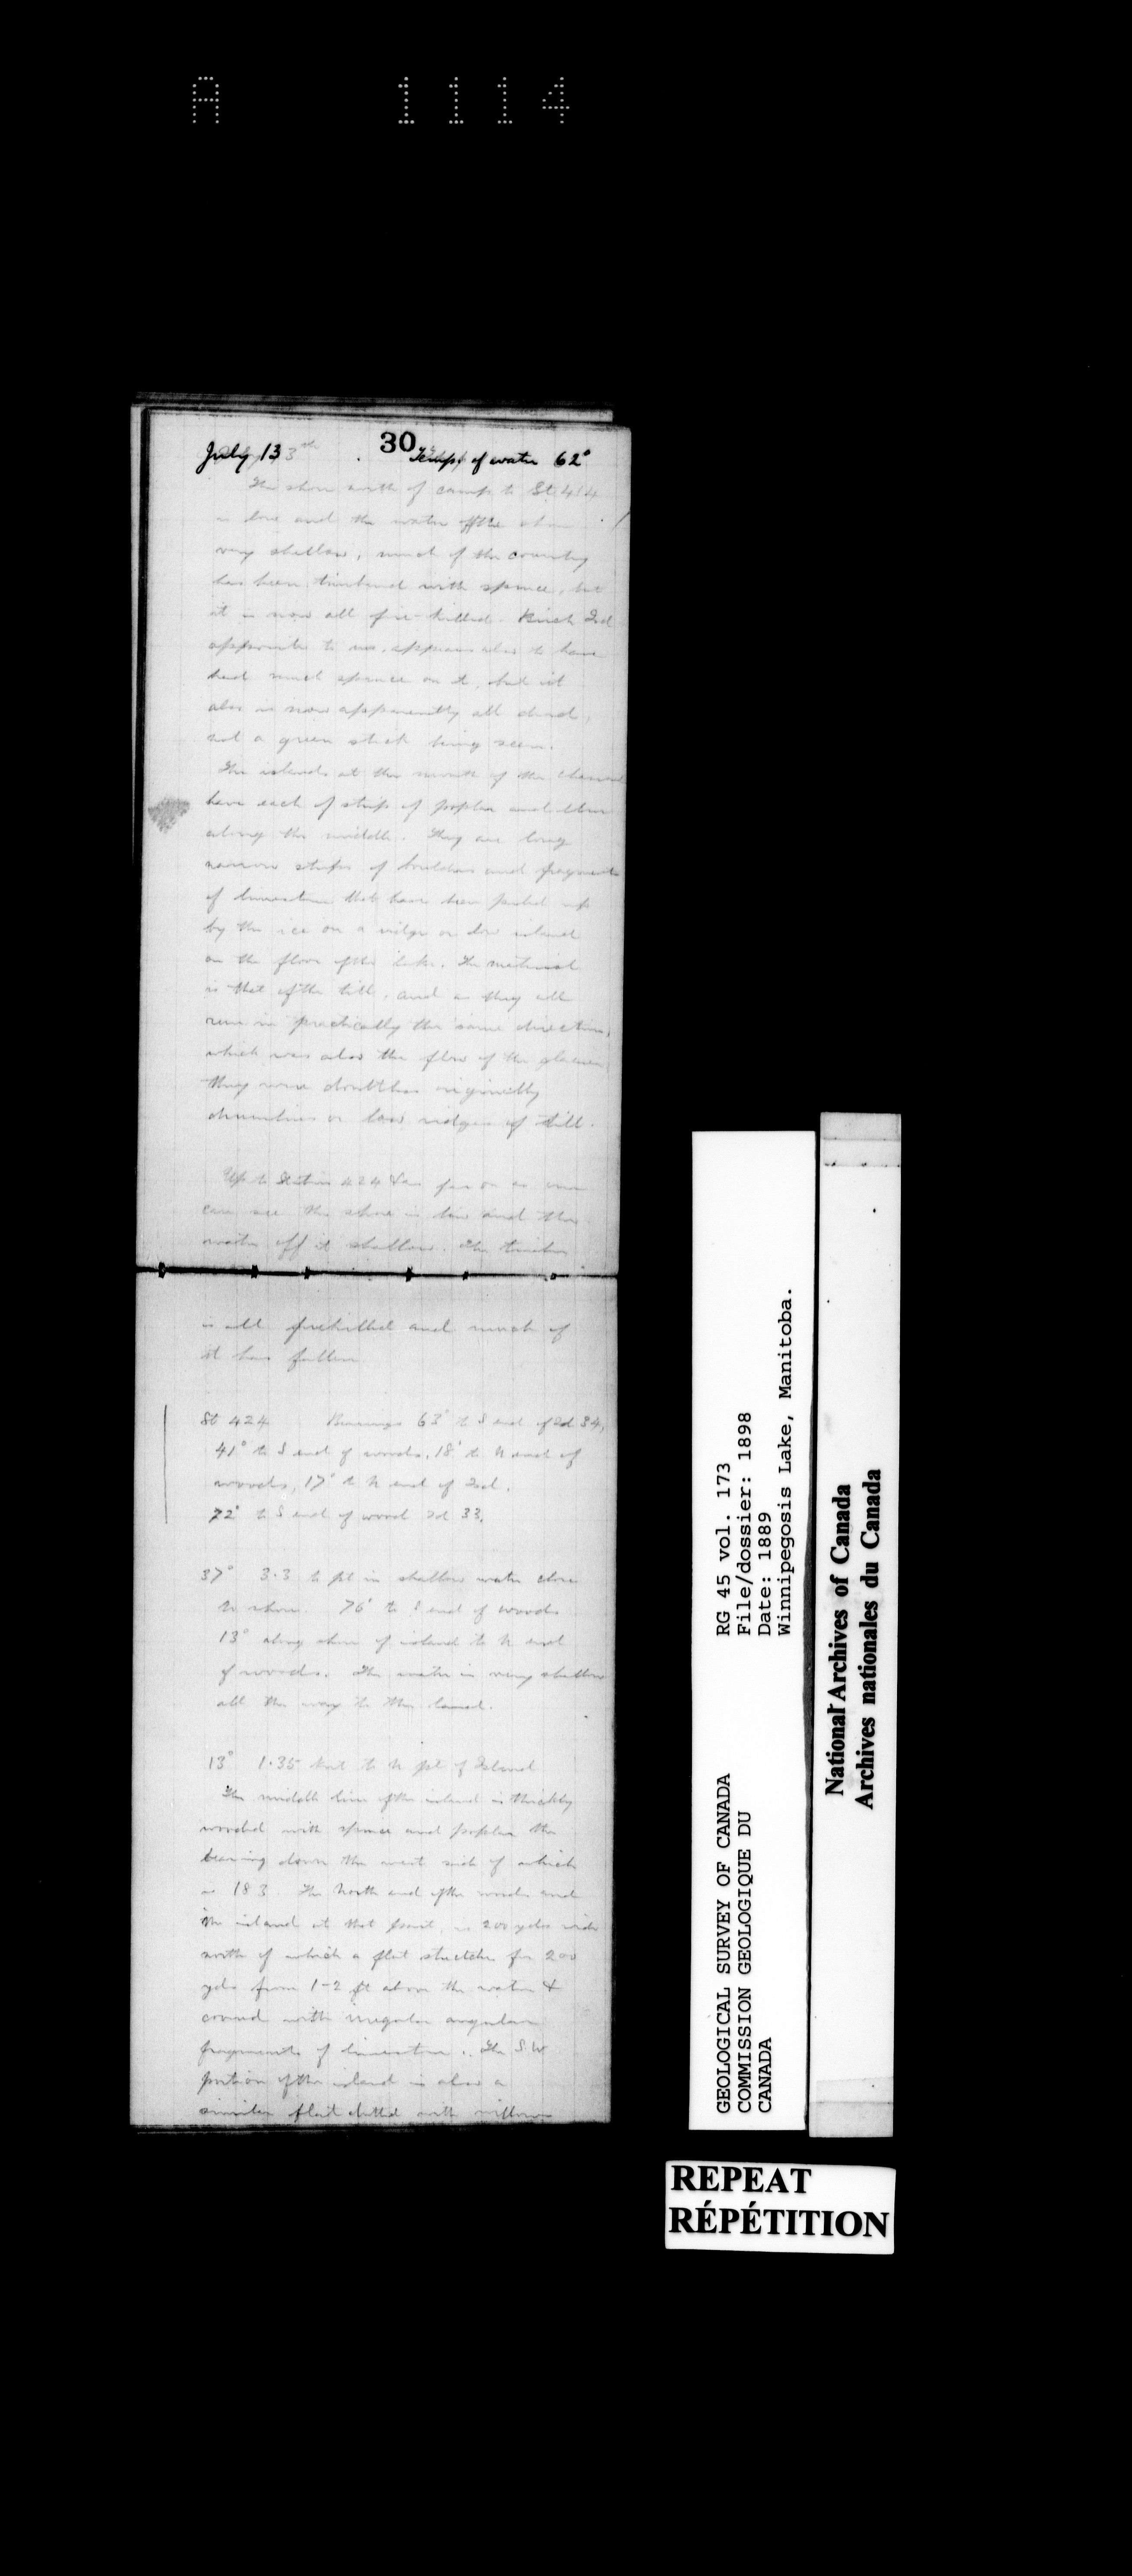 A 1114
30
July 13th Temp. of water 62°
The shore north of camp to St. 414
is low and the water off the shore
very shallow, much of the country
has been timbered with spruce, but
it is now all fire-killed. Birch Isd
opposite to us, appears also to have
had much spruce on it, but it
also is now apparently all dead,
not a green stick being seen.
The islands at the mouth of the channel
have each a strip of poplar and elm
along the middle. They are long
narrow strips of boulders and fragments
of limestone that have been pushed up
by the ice on a ridge or low island
on the floor of the lake. The material
is that of the till, and as they all
run in practically the same direction,
which was also the flow of the glacier,
they were doubtless originally
drumlins or low ridges of till.
Up to Station 424 & as far on as one
can see the shore is low and the
water off it shallow. The timber
is all firekilled and much of
it has fallen
St 424 Bearings 63° to S end of Isd 34,
41° to S end of woods, 18° to N end of
woods, 17° to N end of Isd.
72° to S end of wood Isd 33.
37° 3.3 to pt in shallow water close
to shore. 76° to S end of woods
13° along shore of island to N end
of woods. The water is very shallow
all the way to the land.
13° 1.35 to N pt of Island
The middle line of the island is thickly
wooded with spruce and poplar the
bearing down the west side of which
is 183. The north end of the woods and
the island at that point, is 200 yds wide
north of which a flat stretches for 200
yds from 1-2 ft above the water &
covered with irregular angular
fragments of limestone. The S.W
portion of the island is also a
similar flat dotted with willows
GEOLOGICAL SURVEY OF CANADA
COMMISSION GEOLOGIQUE DU
CANADA
RG 45 vol. 173
File/dossier: 1898
Date: 1889
Winnipegosis Lake, Manitoba.
National Archives of Canada
Archives nationales du Canada
REPEAT
RÉPÉTITION